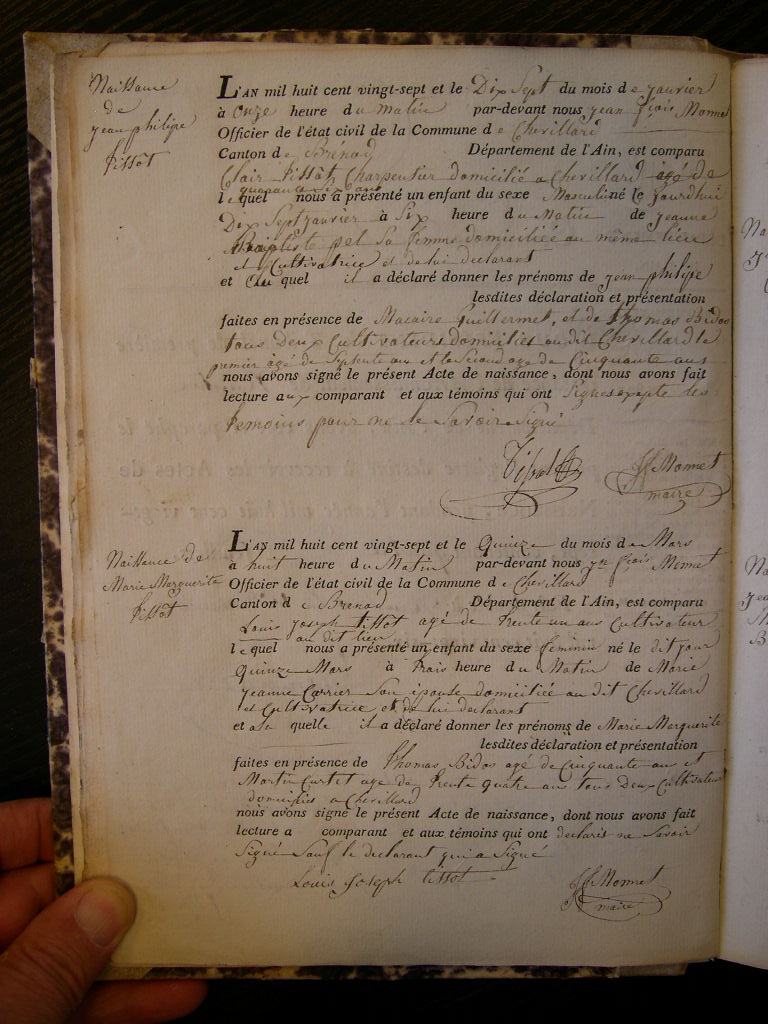 Naissance
de
jean philipe
tissot
L'AN mil huit cent vingt-sept et le Dix Sept du mois de janvier
à Onze heure du matin par-devant nous jean fçois Monnet
Officier de l'état civil de la Commune de Chevillard
Canton de Brénod Département de l'Ain, est comparu
Clair tissot, Charpentier domicilié a Chevillard agé de
quarante six ans
lequel nous a présenté un enfant du sexe Masculin né le jourdhui
Dix Sept janvier à Six heure du Matin de jeanne
Baptiste pel Sa femme domiciliée au même lieu
et Cultivatrice et de lui declarant
et auquel il a déclaré donner les prénoms de jean philipe
lesdites déclaration et présentation
faites en présence de Macaire Guillermet, et de thomas Bidos
tous deux Cultivateurs domiciliés au dit Chevillard le
premier agé de Septente ans et le Second age de Cinquante ans
nous avons signé le présent Acte de naissance, dont nous avons fait
lecture aux comparant et aux témoins qui ont Signes excepte les
temoins pour ne le Savoir Signé
Tissot
JfMonnet
maire
Naissance de
Marie Marguerite
tissot
L'AN mil huit cent vingt-sept et le Quinze du mois de Mars
à huit heure du Matin par-devant nous jn fçois Monnet
Officier de l'état civil de la Commune de Chevillard
Canton de Brenod Département de l'Ain, est comparu
Louis joseph tissot agé de trente un ans Cultivateur
au dit lieu
lequel nous a présenté un enfant du sexe feminin né le dit jour
Quinze Mars à trois heure du Matin de Marie
jeanne Carrier Son épouse domiciliée au dit Chevillard
et Cultivatrice et de lui declarant
et a la quelle il a déclaré donner les prénoms de Marie Marguerite
lesdites déclaration et présentation
faites en présence de thomas Bidos agé de Cinquante ans et
Martin Curtet age de trente quatre ans tous Deux Cultivateur
domiciliés a Chevillard
nous avons signé le présent Acte de naissance, dont nous avons fait
lecture a comparant et aux témoins qui ont declaris ne Savoir
Signé Sauf le declarant qui a Signé
Louis Joseph tissot
JfMonnet
maire